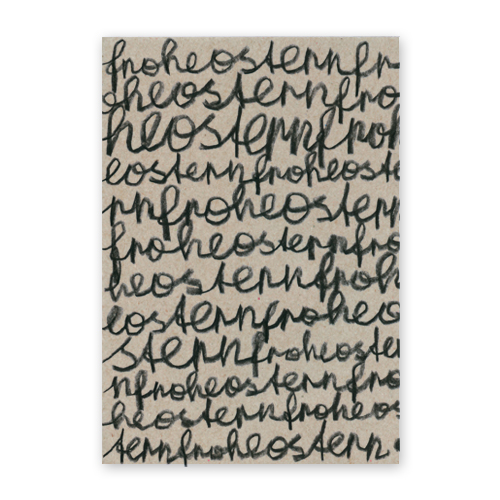 froheosternfr
oheosternfro
heosternfroh
eosternfroheoste
rnfroheostern
froheosternfro
heosternfroh
eosternfroheo
sternfroheoste
rnfroheosternfro
heosternfroheo
sternfroheostern